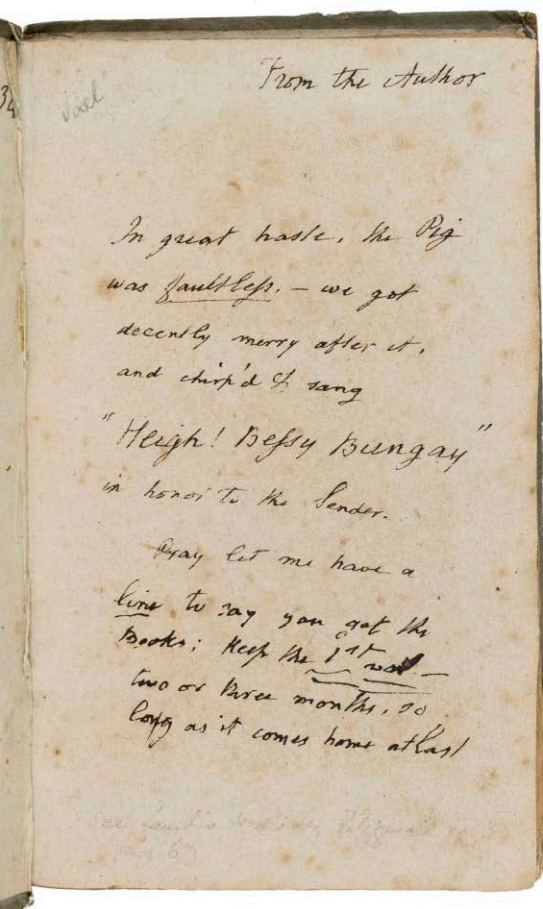 From the Author
In great haste, the Pig
was faultless. — we got
decently merry after it,
and chirp'd & sang
"Heigh! Bessy Bungay"
in honor to the Sender.
Pray let me have a
line to say you got the
Books; keep the 1st vol —
two or three months, so
long as it comes home at last
See